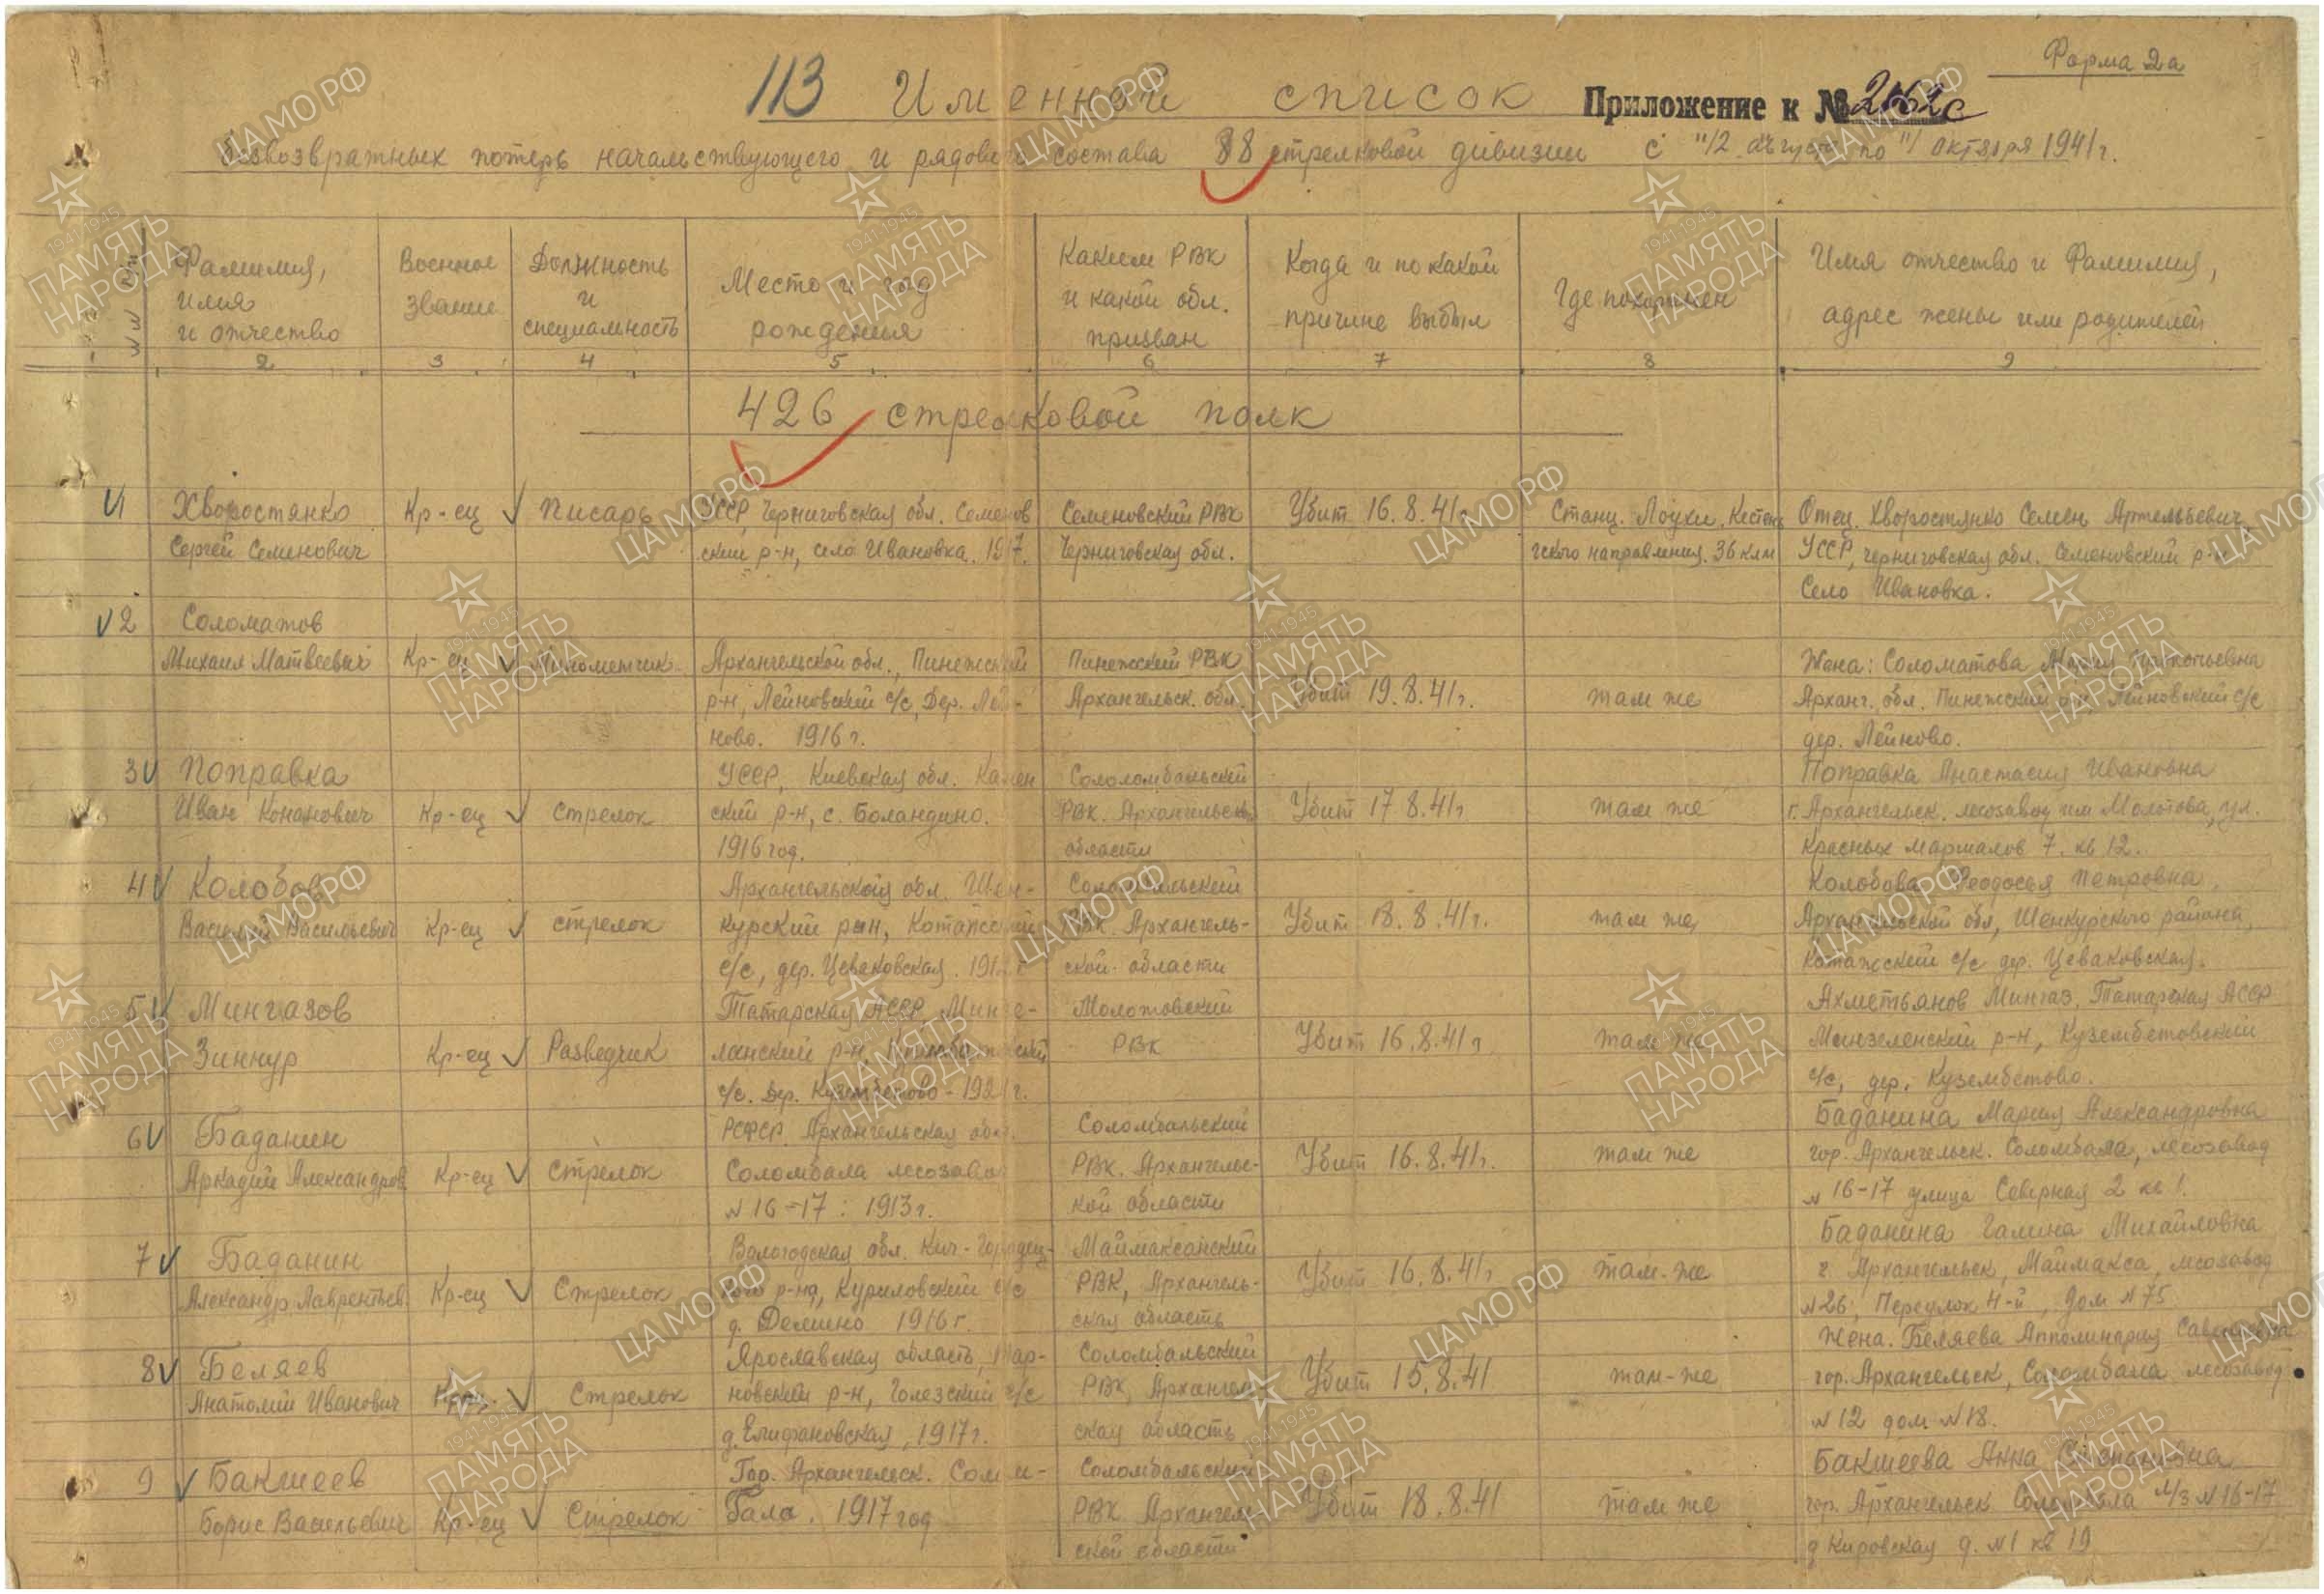 Форма 2а
113 Именной список Приложение к №2162с
безвозвратных потерь начальствующего и рядового состава 88 стрелковой дивизии с "12 августа по "1 октября 1941 г.
№№ п/п
Фамилия,
имя
и отчество
Военное
звание
Должность
и
специальность
Место и год
рождения
Каким РВК
и какой обл.
призван
Когда и по какой
причине выбыл
Где похоронен
Имя отчество и Фамилия,
адрес жены или родителей
2 3 4 5 6 7 8 9
426 стрелковой полк
1 Хворостянко Кр-ец Писарь УССР, Черниговская обл. Семенов Семеновский РВК Убит 16.8.41г. Станц. Лоухи, Кестень Отец. Хворостянко Семен Артемьевич
Сергей Семенович ский р-н, село Ивановка. 1917. Черниговская обл. гского направления. 36 клм УССР, Черниговская обл. Семеновский р-н
Село Ивановка.
2 Соломатов
Михаил Матвеевич Кр-ец Минометчик Архангельской обл., Пинежский Пинежский РВК Жена: Соломатова Мария Прокопьевна
р-н, Лейновский с/с, Дер. Лей- Архангельск. обл. Убит 19.8.41г. там же Арханг. обл. Пинежский р-н, Лейновский с/с
ново. 1916 г. дер. Лейново.
3 Поправка УССР, Киевская обл. Камен Солололмбальский Поправка Анастасия Ивановна
Иван Кононович Кр-ец стрелок ский р-н, с. Баландино. РВК. Архангельск. Убит 17.8.41г там же г. Архангельск. лесозавод им Молотова, ул.
1916 год. области Красных маршалов 7. кв 12.
4 Колобов Архангельской обл. Шен- Соломбальский Колобова Феодосья Петровна,
Василий Васильевич Кр-ец стрелок курский р-н, Котажский РВК Архангель- Убит 18.8.41г. там же Архангельской обл, Шенкурского района,
с/с, дер. Цеваковская. ской области Котажский с/с дер. Цеваковская.
5 Мингазов Татарская АССР, Минзе- Молотовский Ахметьянов Мингаз, Татарская АССР
Зиннур Кр-ец Разведчик ланский р-н, Кузембетовский РВК Убит 16.8.41г там же Минзеленский р-н, Кузембетовский
с/с. Дер. Кузембетово - 1921г. с/с, дер. Кузембетово.
6 Баданин РСФСР. Архангельская обл. Соломбальский Баданина Мария Александровна
Аркадий Александров Кр-ец Стрелок Соломбала лесозавод РВК. Архангельс- Убит 16.8.41г. там же гор. Архангельск. Соломбала, лесозавод
№ 16-17. 1913г. кой области № 16-17 улица Северная 2 кв 1.
7 Баданин Вологодская обл. Кич-Городец- Маймаксанский Баданина Галина Михайловна
Александр Лаврентьев Кр-ец Стрелок кого р-на, Куриловский с/с РВК, Архангель- Убит 16.8.41г там-же г. Архангельск, Маймакса, лесозавод
д. Демино 1916 г. ская область №26, Переулок 4-й, дом №75
8 Беляев Ярославская область, Соломбальский Жена. Беляева Апполинария
Анатолий Иванович Кр-ец. Стрелок новский р-н, Голезский с/с РВК, Архангель- Убит 15.8.41 там-же гор. Архангельск, Соломбала лесозавод
д. Епифановская, 1917г. ская область №12 дом №18.
9 Бакшеев Гор. Архангельск. Солом- Соломбальский Бакшеева Анна Степановна
Борис Васильевич Кр-ец Стрелок бала. 1917 год РВК Архангель- Убит 18.8.41 там же гор. Архангельск Соломбала л/з №16-17
ской области Кировская д. №1 кв 19